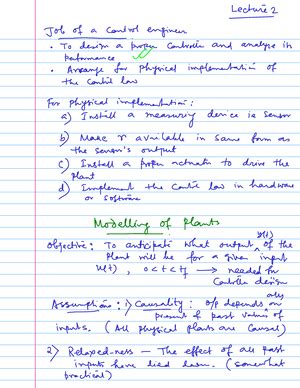 Lecture 2
Job of a Control engineer
• To design a proper Controller and analyse its
performance
• Arrange for physical implementation of
the Control law
For physical implementation:
a) Install a measuring device ie sensor
b) Make r available in same form as
the sensor's output
c) Install a proper actuator to drive the
Plant
d) Implement the Control law in hardware
or software
Modelling of Plants
Objective: To anticipate what output y(t) of the
Plant will be for a given input
u(t), 0 < t < tf → needed for
Controller design
Assumptions: 1) Causality: o/p depends only
present & past values of
inputs. (All physical plants are causal)
2) Relaxed-ness — The effect of all past
inputs have died down. (somewhat
practical)